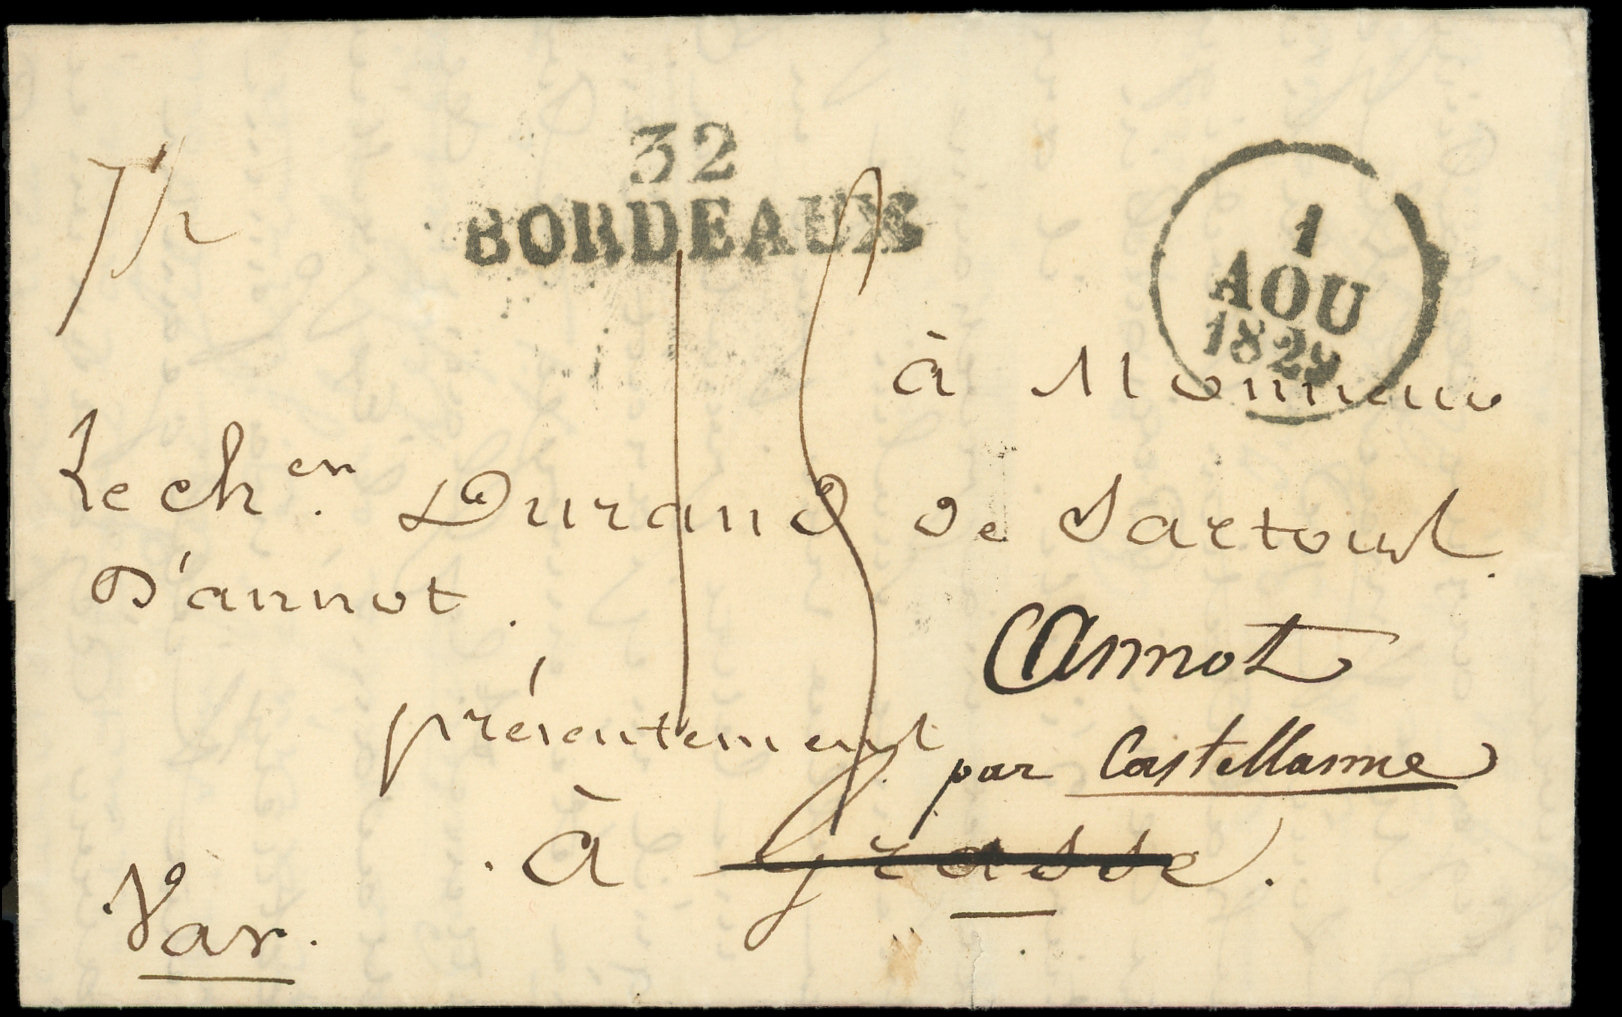 32
BORDEAUX
1
AOU
1829
15
à Monsieur
Le ch.er Durand de Sartoux
D'annot.
Annot
présentement
par Castellanne
à Grasse.
Var.